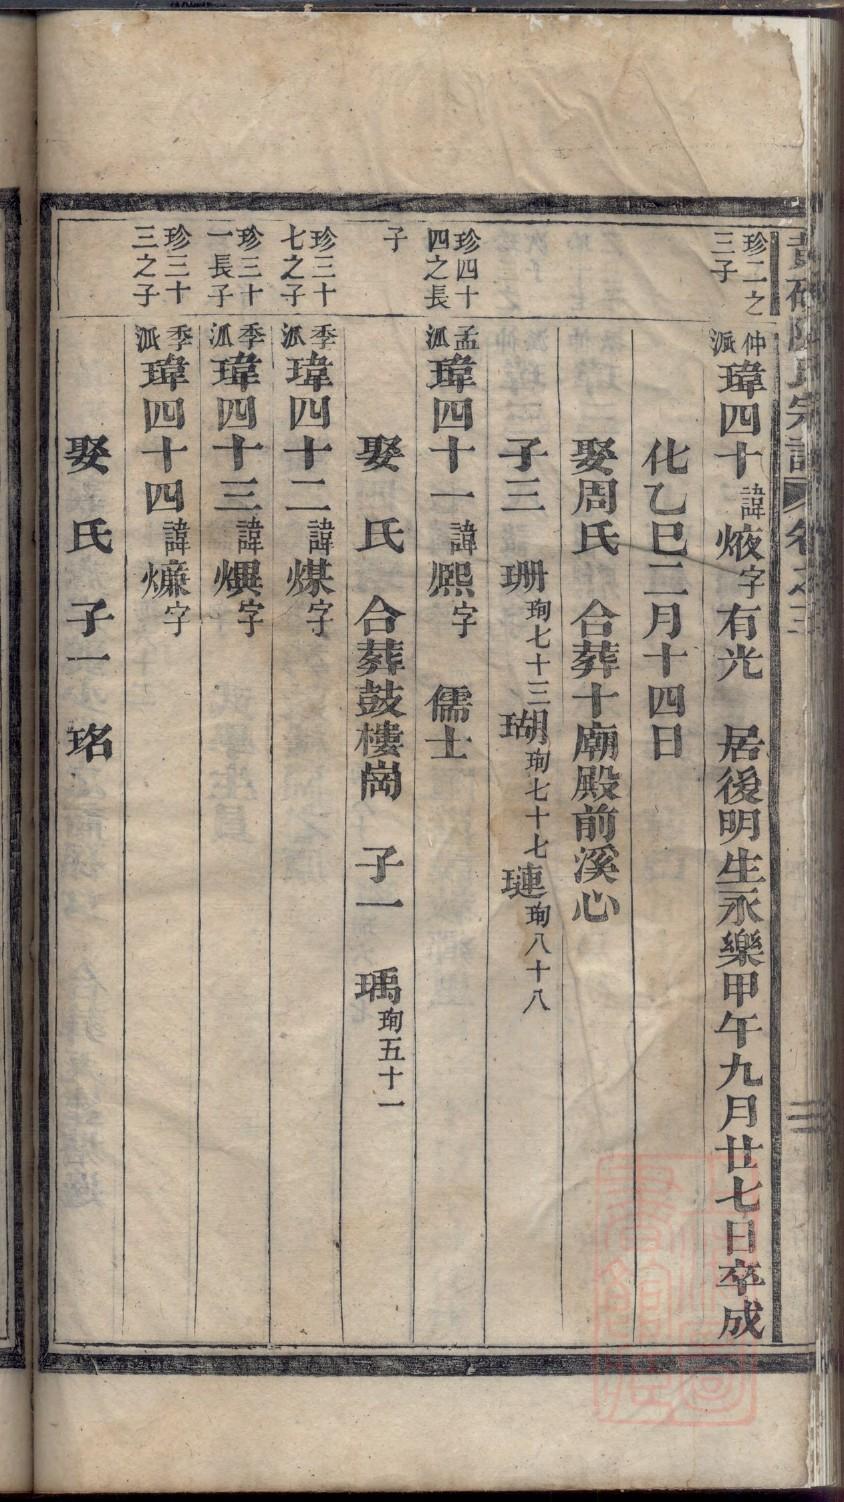 宗譜 卷之三
珍二之三子 仲派 瑋四十 諱焲字有光 居後明生永樂甲午九月廿七日卒成
化乙巳二月十四日
娶周氏 合葬十廟殿前溪心
子三 珊珣七十三 瑚珣七十七 璉珣八十八
珍四十四之長 孟派 瑋四十一 諱熈字 儒士
子 娶 氏 合葬鼓樓崗 子一 瑀珣五十一
珍三十七之子 季派 瑋四十二 諱煤字
珍三十一長子 季派 瑋四十三 諱熼字
珍三十三之子 季派 瑋四十四 諱㷰字
娶 氏 子一 珞